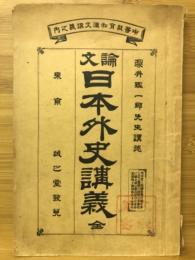 中等教育和漢文講義之内
深井鑑一郎先生講述
論文
日本外史講義 全
東京 誠之堂發兌